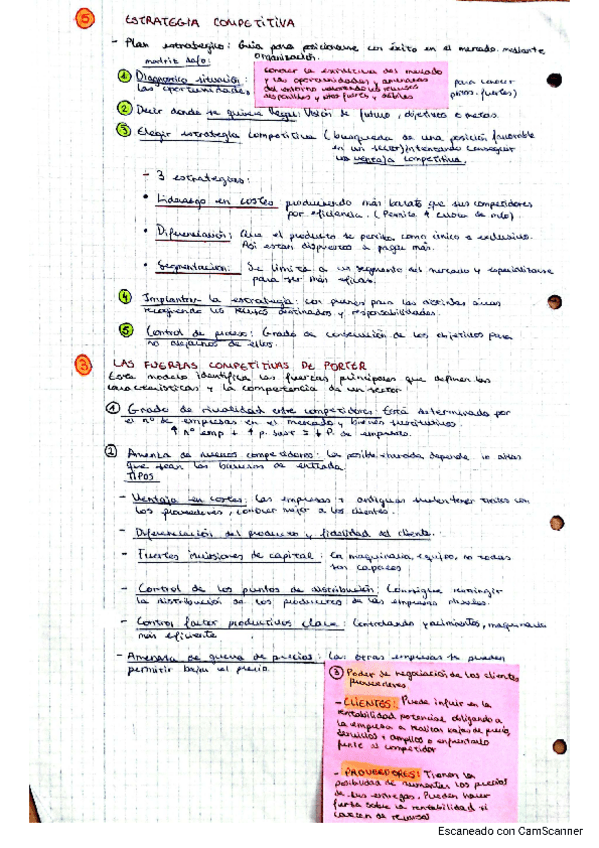 5 ESTRATEGIA COMPETITIVA
- Plan estrategico: Guia para posicionarse con éxito en el mercado mediante
matriz dafo: organización.
1 Diagnostico situación:
las oportunidades
conocer la estructura del mercado
y las oportunidades y amenazas
del entorno valorando los recursos
disponibles y ptos fuertes y débiles
para conocer
ptos. fuertes)
2 Decir donde se quiere llegar: Visión de futuro, objetivos o metas.
3 Elegir estrategia competitiva (busqueda de una posición favorable
en un sector) intentando conseguir
una ventaja competitiva.
- 3 estrategias:
• Liderazgo en costes produciendo más barato que sus competidores
por eficiencia. (Permite ↑ cuota de mdo)
• Diferenciación: Que el producto se perciba como único o exclusivo.
Así están dispuestos a pagar más.
• Segmentación: Se limita a un segmento del mercado y especializarse
para ser más eficaz.
4 Implantar la estrategia: con planes para las distintas áreas
recogiendo los recursos destinados y responsabilidades.
5 Control de proceso: Grado de consecución de los objetivos para
no alejarnos de ellos.
3 LAS FUERZAS COMPETITIVAS DE PORTER
Este modelo identifica las fuerzas principales que definen las
características y la competencia de un sector
1 Grado de rivalidad entre competidores: Está determinado por
el nº de empresas en el mercado y bienes sustitutivos.
↑ nº emp + ↑ p. sust = ↓ P. de empresa.
2 Amenaza de nuevos competidores: La posible entrada depende lo altas
que sean las barreras de entrada
TIPOS
- Ventaja en costes: Las empresas + antiguas suelen tener tratos con
los proveedores, conocer mejor a los clientes.
- Diferenciación del producto y fidelidad del cliente.
- Fuertes inversiones de capital: La maquinaria, equipo, no todas
son capaces
- Control de los puntos de distribución: Consigue restringir
la distribución de los productos de las empresas nuevas.
- Control factor productivos clave: Controlando yacimientos, maquinaria
más eficiente
- Amenaza de guerra de precios: Las otras empresas se pueden
permitir bajar el precio.
3 Poder de negociación de los clientes
proveedores.
- CLIENTES: Puede influir en la
rentabilidad potencial obligando a
la empresa a realizar bajas de precio,
servicios + amplios o enfrentarlo
frente al competidor
- PROVEEDORES: Tienen la
posibilidad de aumentar los precios
de sus entregas. Pueden hacer
fuerza sobre la rentabilidad si
carecen de recursos
Escaneado con CamScanner